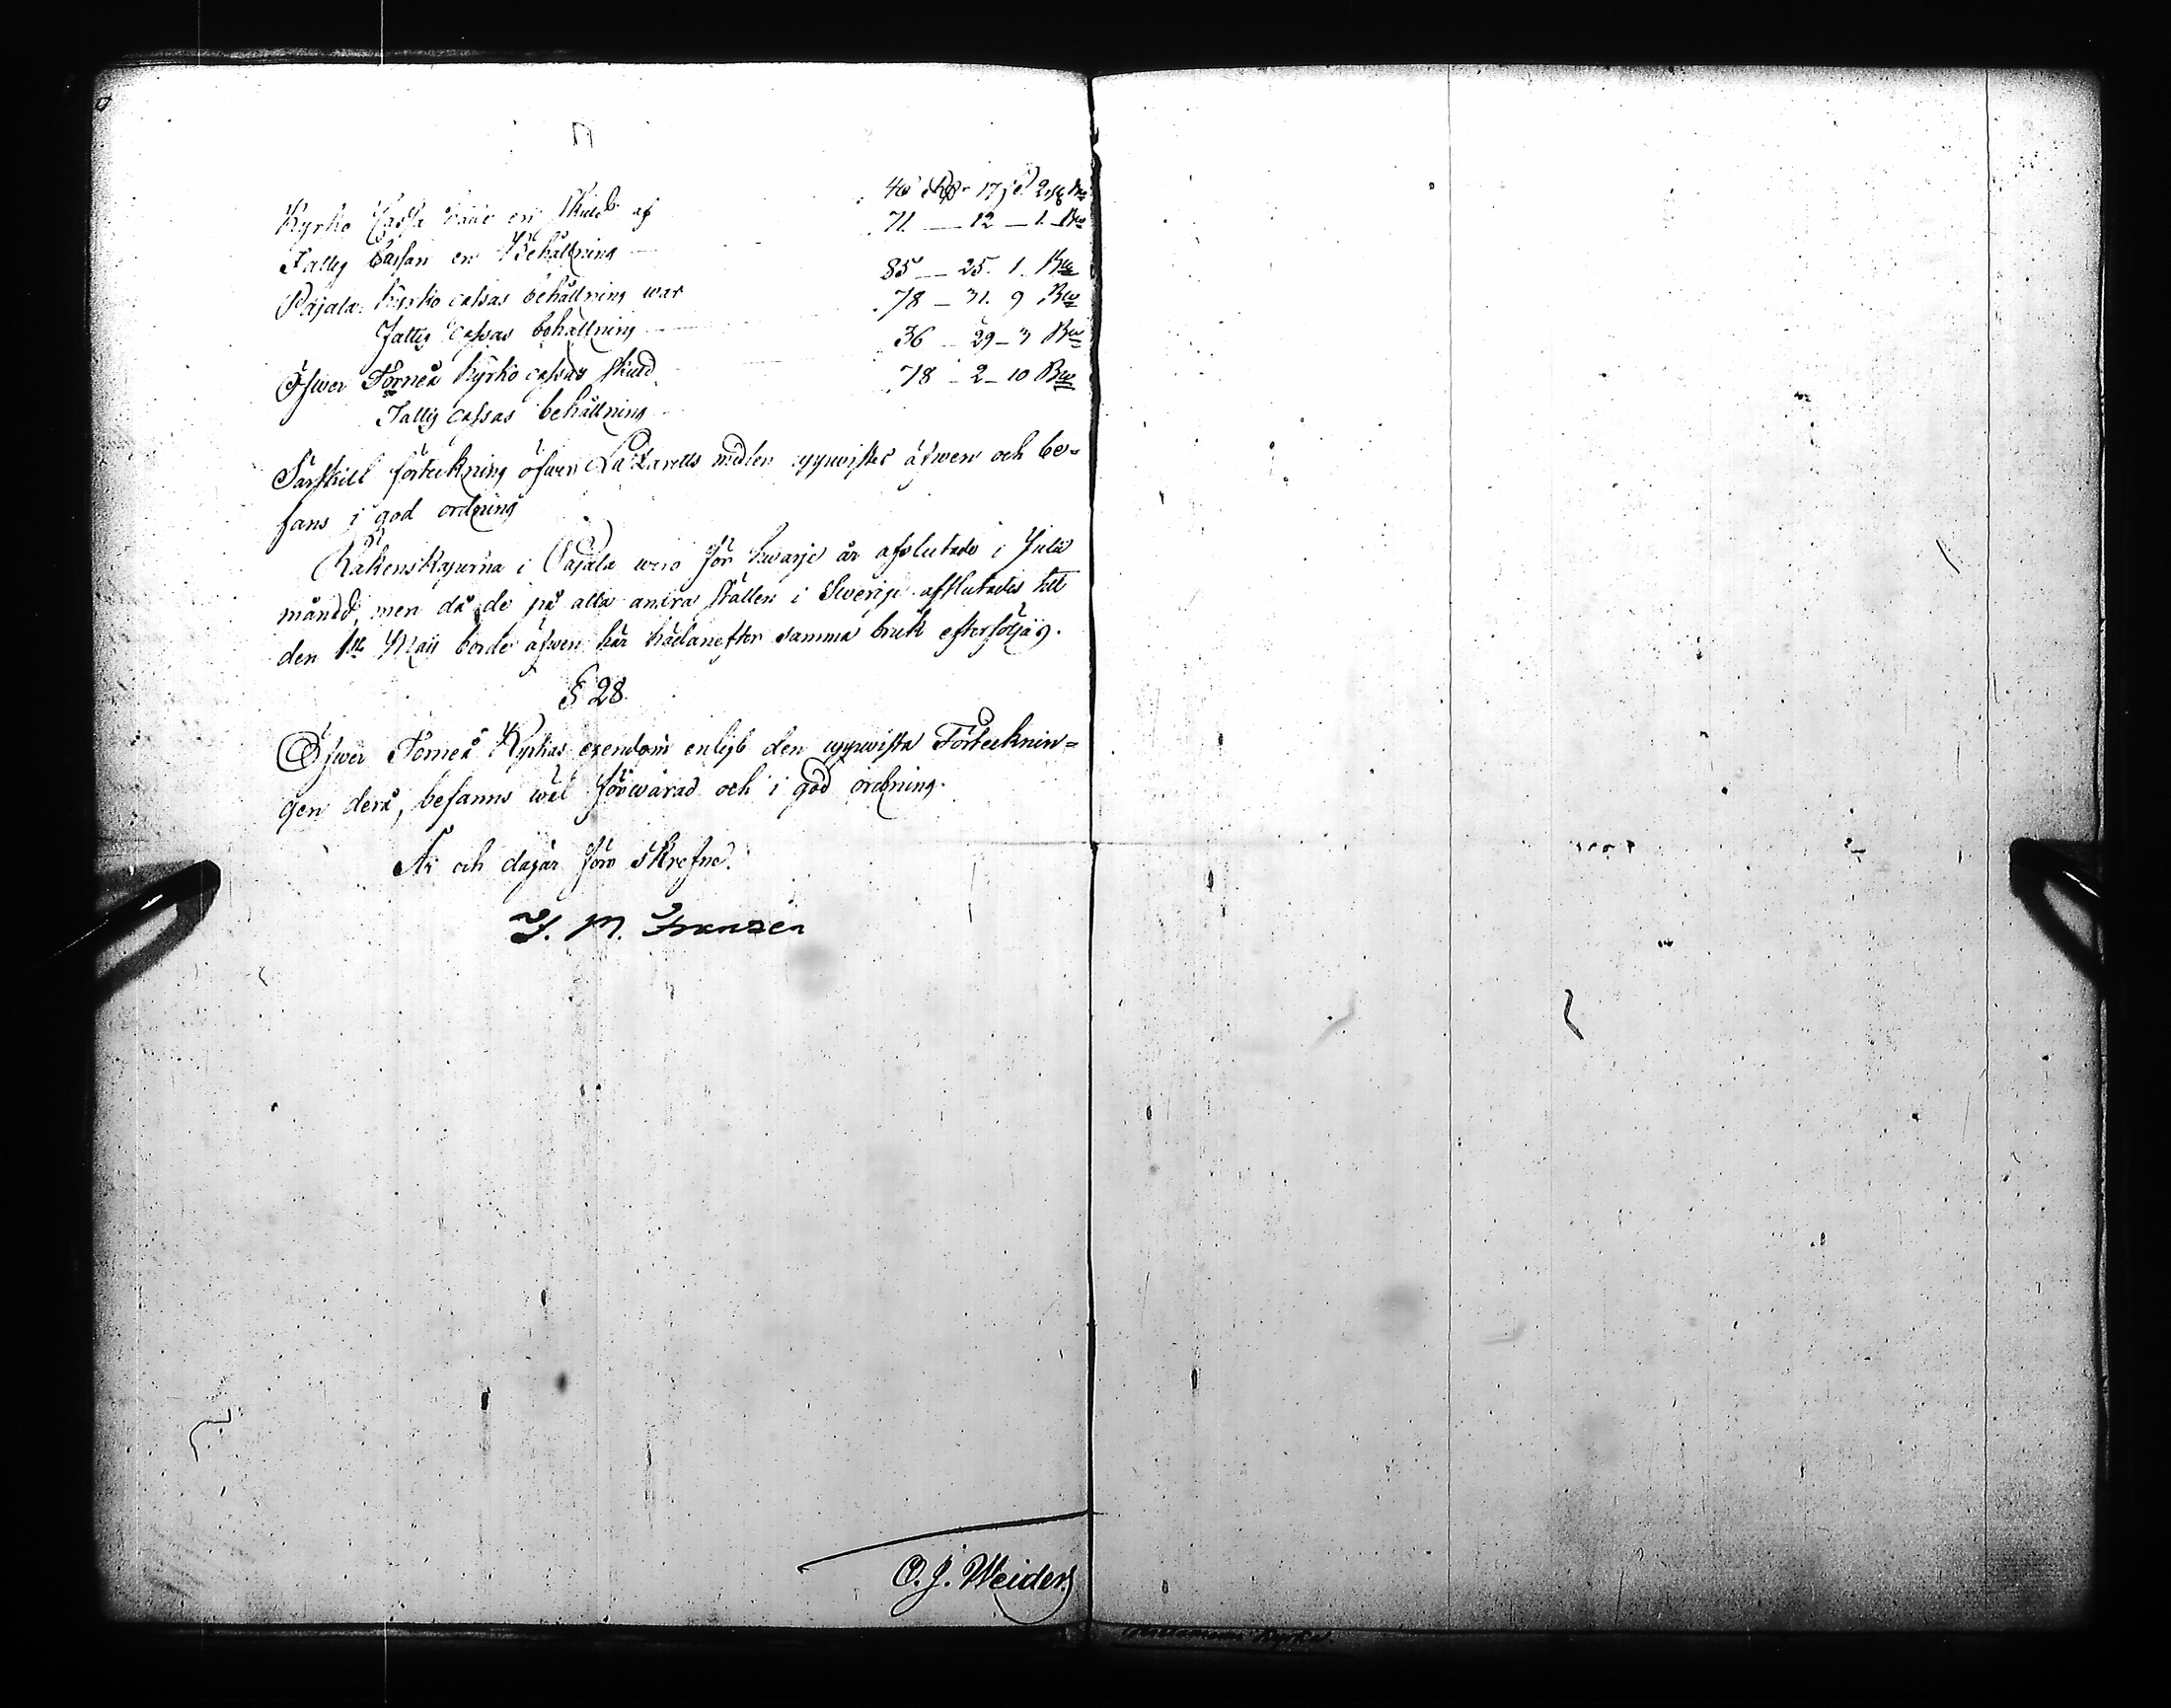 Kyrko Cassa hade en Skuld af 40 Rdr 17 s 2 rst Bco
Fattig Cassan en Behållning 71 — 12 — 1. Bco
Pajala Kyrko cassas behållning war 85 — 25. 1. Bco
Fattig cassas behållning 78 — 31. 9 Bco
Öfwer Torneå Kyrko cassas skuld 36 — 29 — 3 Bco
Fattig cassas behållning 78 — 2 — 10 Bco
Särskilt förteckning öfwer Lazaretts medlen uppwistes äfwen och be-
fans i god ordning
Räkenskaperna i Pajala woro för hwarje år afslutade i Julii
månad, men då de på alla andra ställen i Swerige afslutades till
den 1ste Maij borde äfwen här hädanefter samma bruk efterföljas.
§ 28.
Öfwer Torneå Kyrkas egendom enligt den uppwista Förtecknin-
gen derå, befanns wäl förwarad och i god ordning.
År och dagar som skrefne.
F. M. Franzén
O. J. Weiders